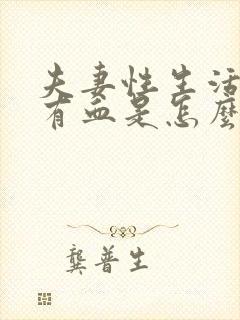 夫妻性生活
有血是怎麼
龔普生